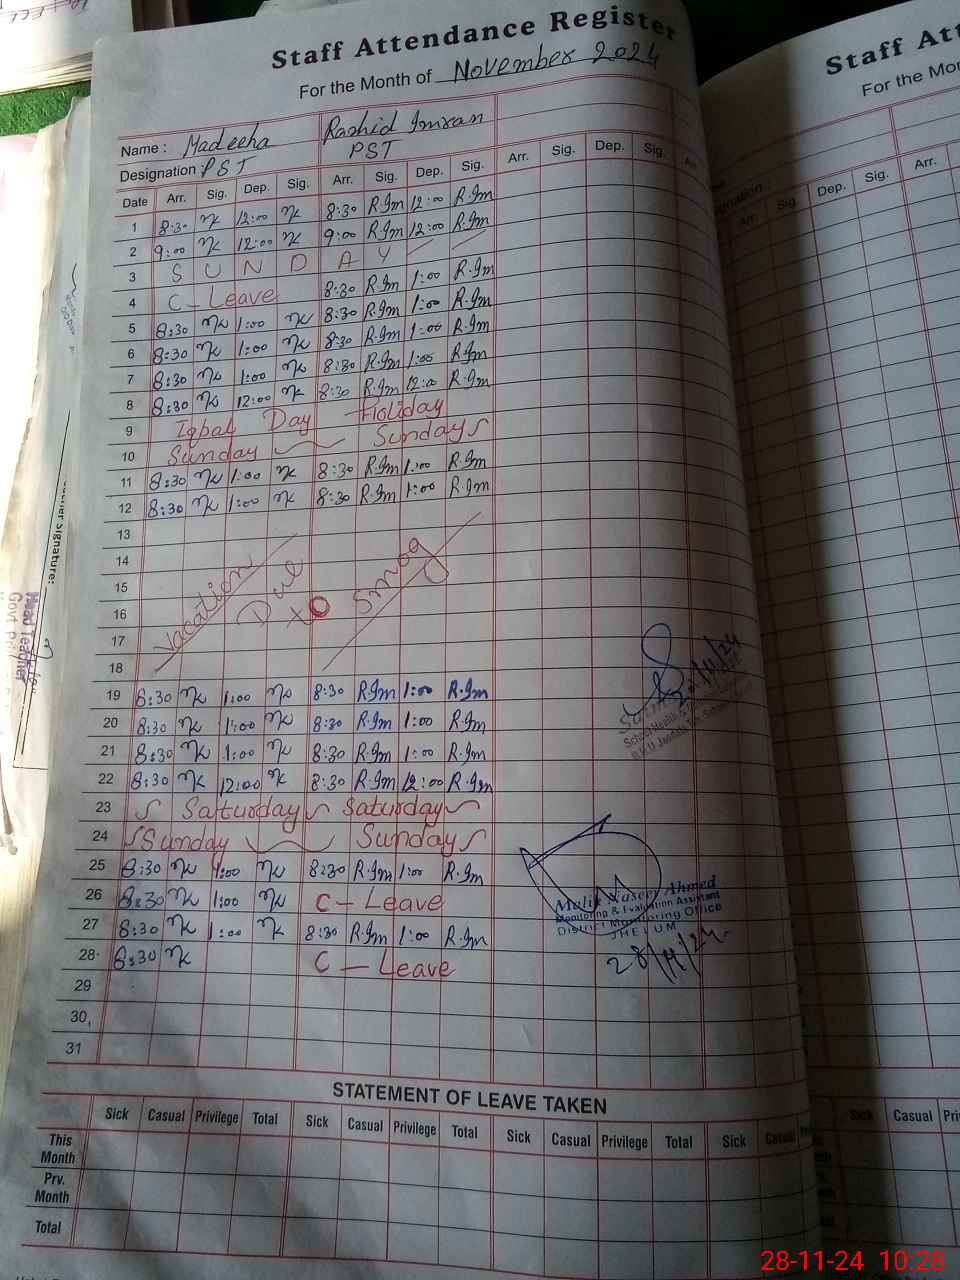 Staff Attendance Register
For the Month of November 2024
Name : Madeeha Rashid Imran
Designation : PST PST
Date Arr. Sig. Dep. Sig. Arr. Sig. Dep. Sig. Arr. Sig. Dep. Sig.
1 8:30 12:00 8:30 R.Im 12:00 R.Im
2 9:00 12:00 9:00 R.Im 12:00 R.Im
3 S U N D A Y
4 C - Leave 8:30 R.Im 1:00 R.Im
5 8:30 1:00 8:30 R.Im 1:00 R.Im
6 8:30 1:00 8:30 R.Im 1:00 R.Im
7 8:30 1:00 8:30 R.Im 1:00 R.Im
8 8:30 12:00 8:30 R.Im 12:00 R.Im
9 Iqbal Day Holiday
10 Sunday Sunday
11 8:30 1:00 8:30 R.Im 1:00 R.Im
12 8:30 1:00 8:30 R.Im 1:00 R.Im
13
14
15 Vacation Due to Smog
16
17
18
19 8:30 1:00 8:30 R.Im 1:00 R.Im
20 8:30 1:00 8:30 R.Im 1:00 R.Im
21 8:30 1:00 8:30 R.Im 1:00 R.Im
22 8:30 12:00 8:30 R.Im 12:00 R.Im
23 Saturday Saturday
24 Sunday Sunday
25 8:30 1:00 8:30 R.Im 1:00 R.Im
26 8:30 1:00 C - Leave
27 8:30 1:00 8:30 R.Im 1:00 R.Im
28 8:30 C - Leave
29
30
31
Malik Naseer Ahmed
Monitoring & Evaluation Assistant
District Monitoring Office
JHELUM
28/11/24
STATEMENT OF LEAVE TAKEN
Sick Casual Privilege Total Sick Casual Privilege Total Sick Casual Privilege Total Sick Casual
This Month
Prv. Month
Total
Staff Att
For the Mon
Arr. Sig. Dep. Sig. Arr.
Sick Casual Pri
Signature:
Head Teacher
Govt.
28-11-24 10:28